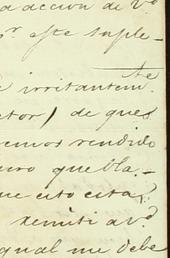 a accion de V.
pr este suple-
te
e irritantem.
ctor) de ques
remos rendido
uebla.-
ue esto esta
remiti a V.
qual me debe